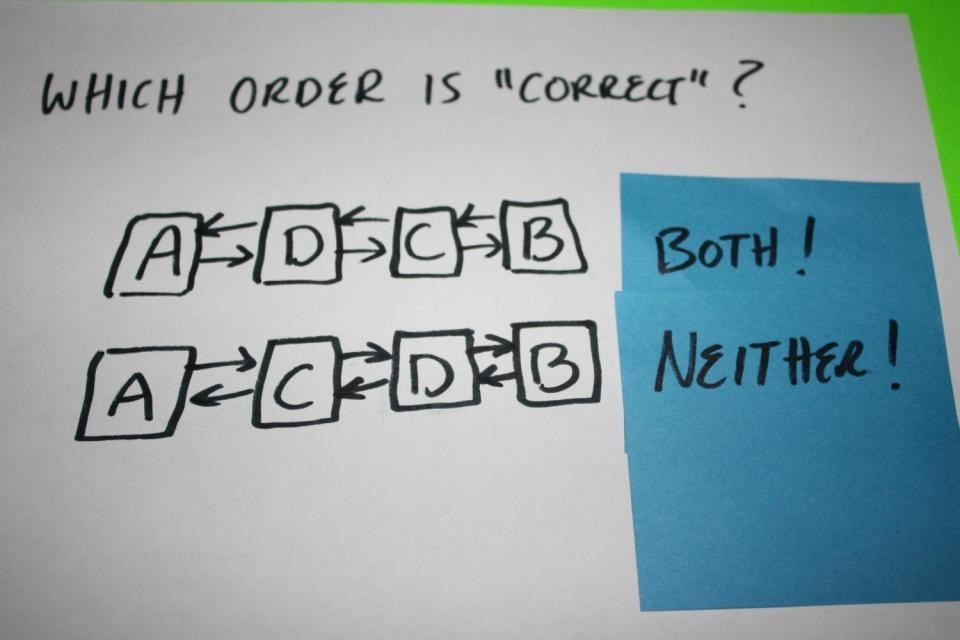 WHICH ORDER IS "CORRECT"?
A D C B
BOTH!
A C D B
NEITHER!